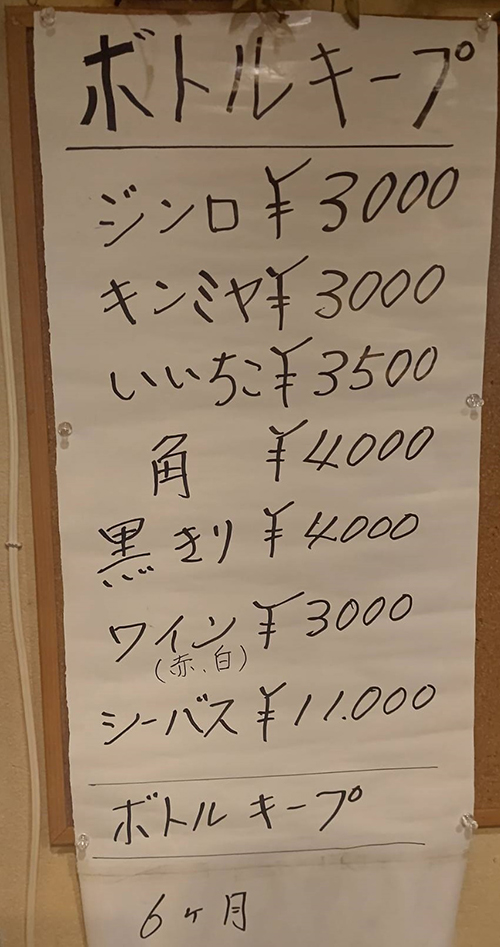 ボトルキープ
ジンロ ¥3000
キンミヤ ¥3000
いいちこ ¥3500
角 ¥4000
黒きり ¥4000
ワイン ¥3000
(赤、白)
シーバス ¥11.000
ボトルキープ
6ヶ月